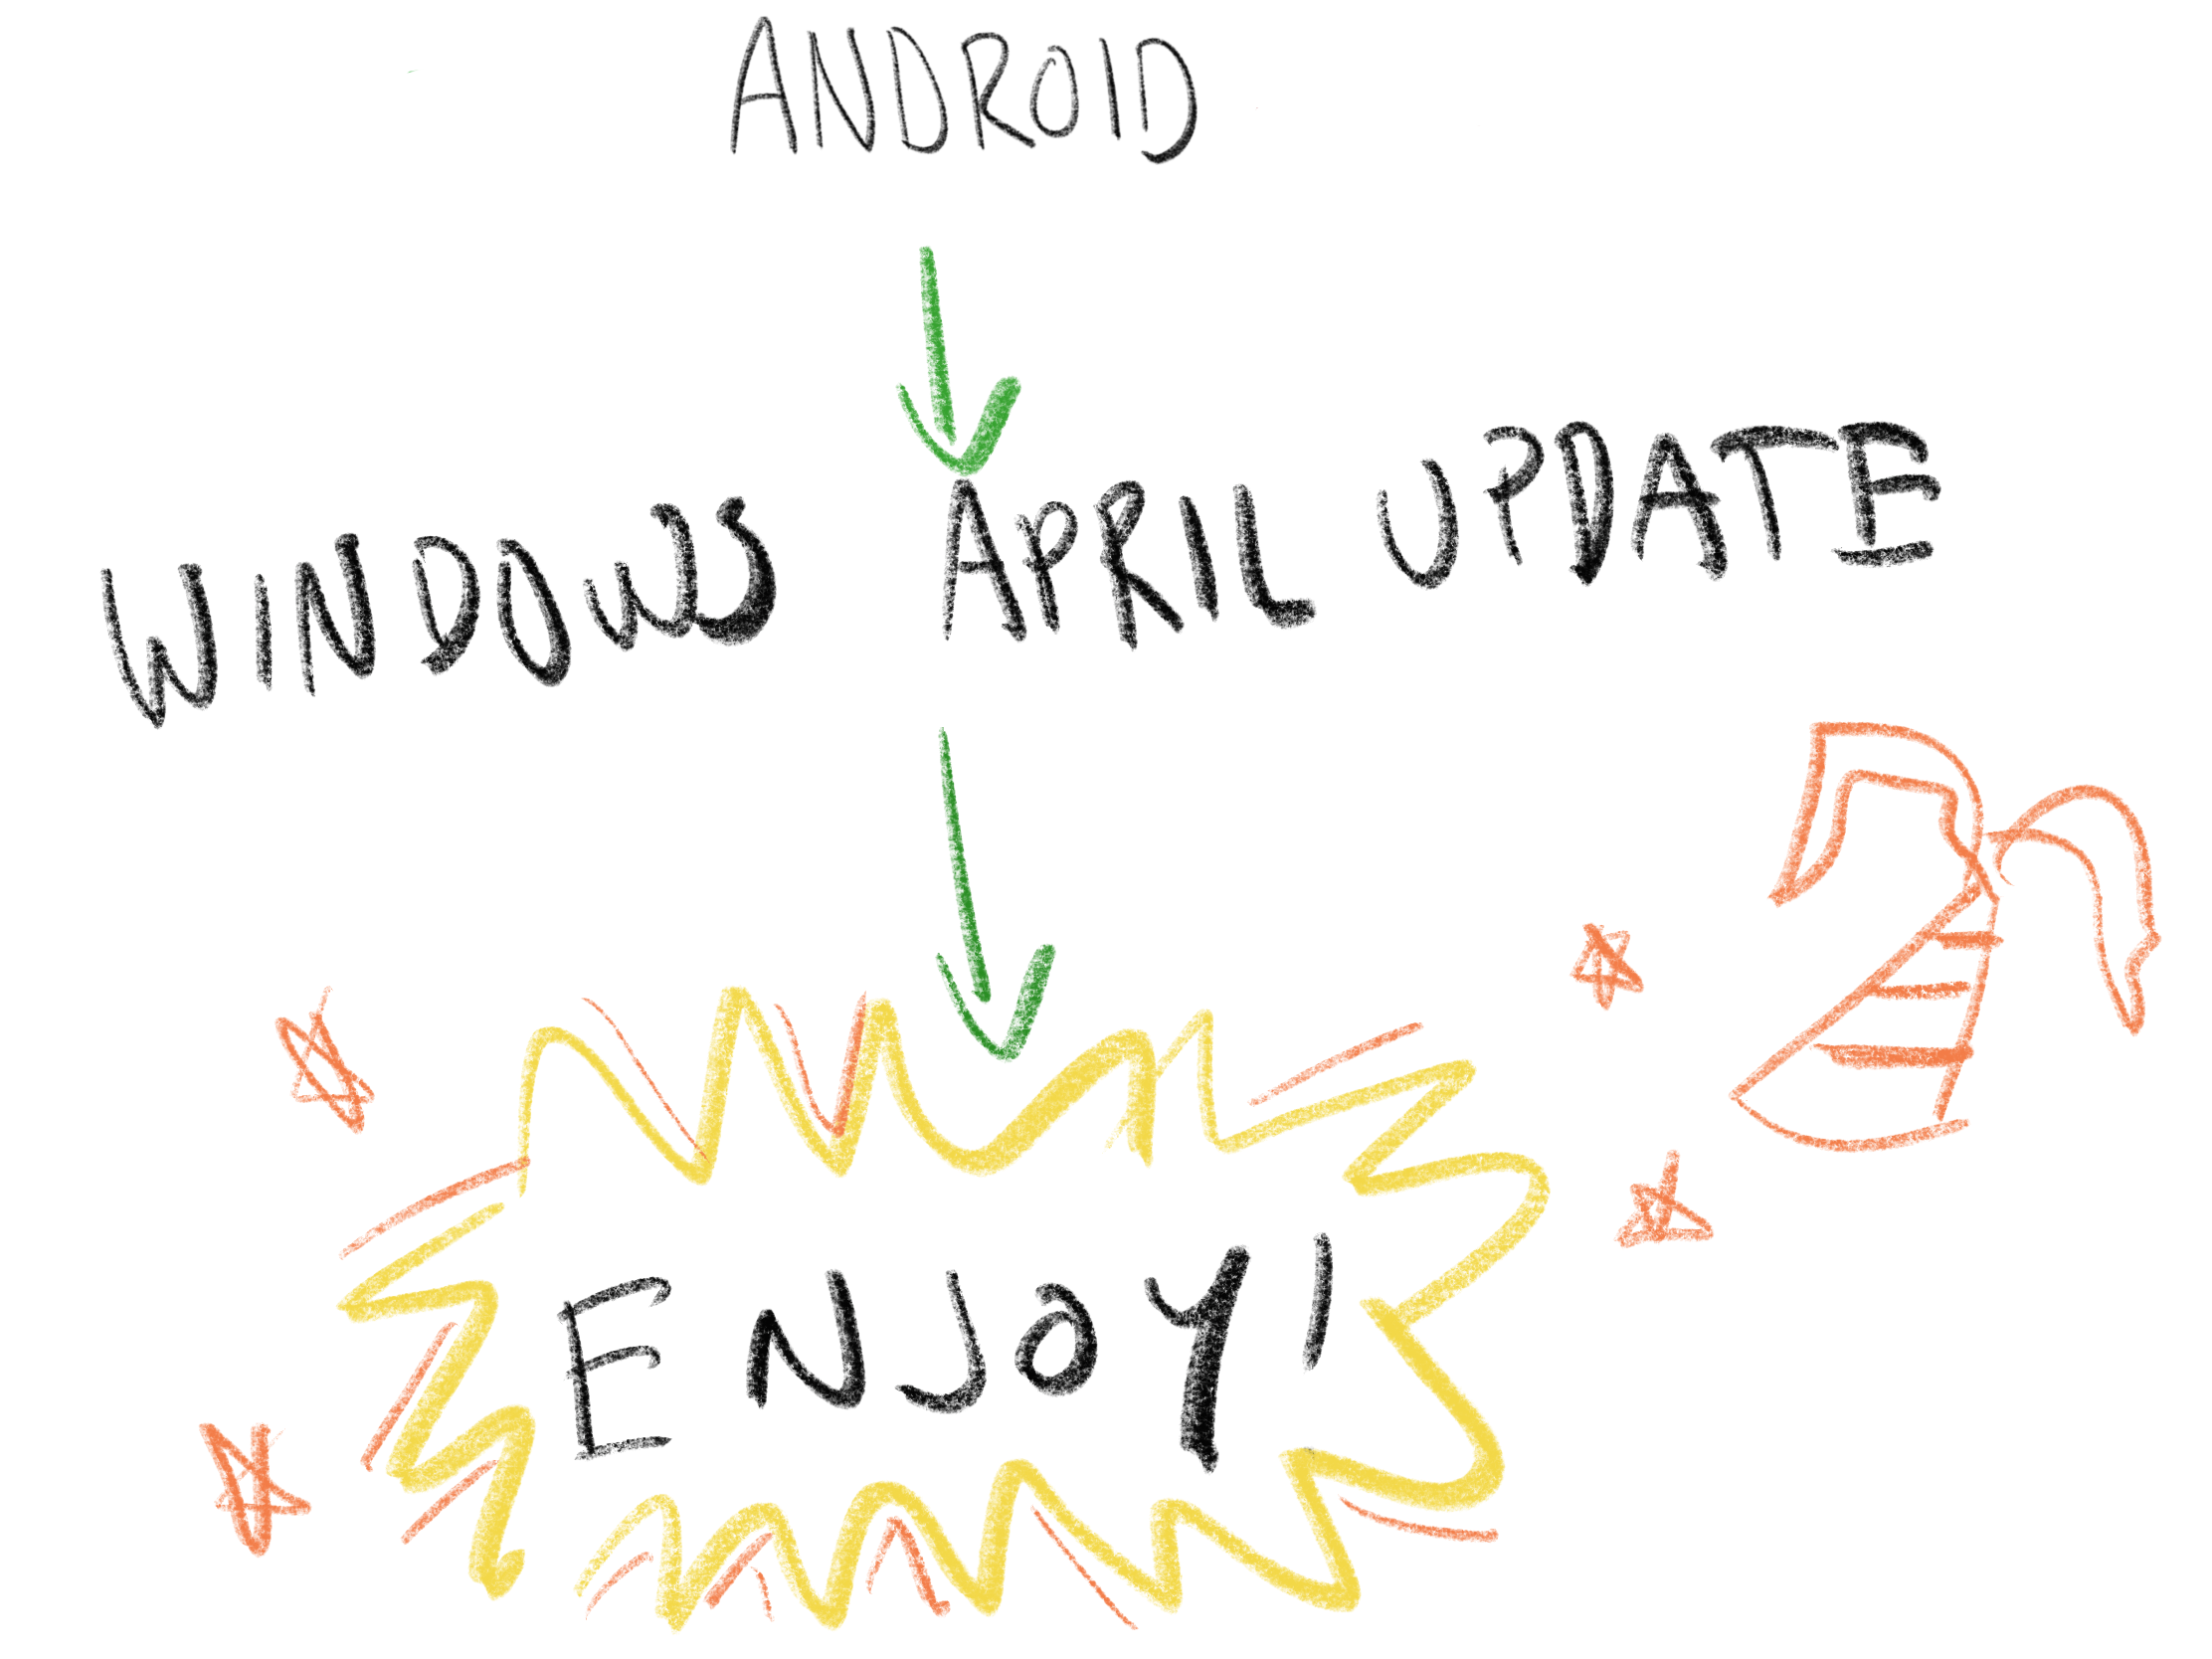 ANDROID
WINDOWS APRIL UPDATE
ENJOY!